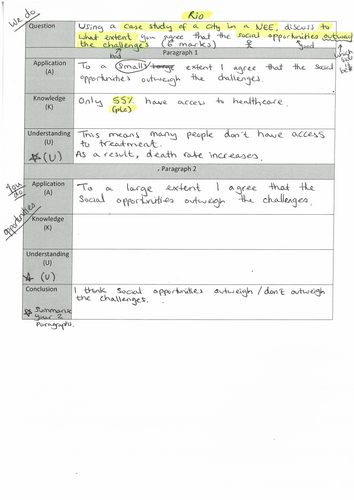 Rio
We do
Question
Using a case study of a city in a NEE, discuss to
what extent you agree that the social opportunities outway
the challenges (6 marks)
bad
good
which
Paragraph 1
Application
(A)
To a small/large extent I agree that the social
opportunities outweigh the challenges.
Knowledge
(K)
Only 55% have access to healthcare.
Understanding
(U)
(U)
This means many people don't have access
to treatment.
As a result, death rate increases.
Paragraph 2
You
do
opportunities
Application
(A)
To a large extent I agree that the
Social opportunities outweigh the challenges.
Knowledge
(K)
Understanding
(U)
(U)
Conclusion
I think social opportunities outweigh / don't outweigh
the challenges.
Summarise
your 2
Paragraphs.